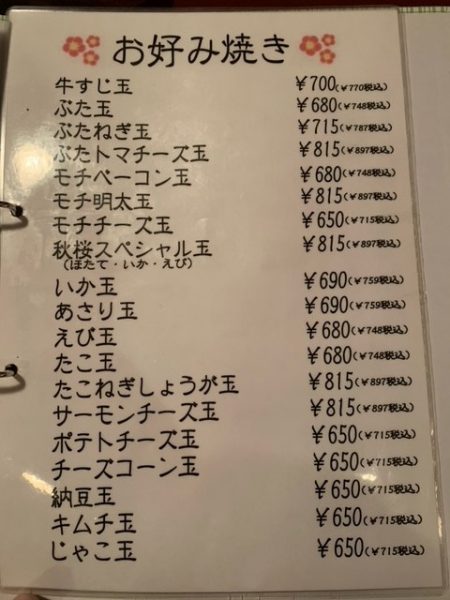 お好み焼き
牛すじ玉 ￥700(￥770税込)
ぶた玉 ￥680(￥748税込)
ぶたねぎ玉 ￥715(￥787税込)
ぶたトマチーズ玉 ￥815(￥897税込)
モチベーコン玉 ￥680(￥748税込)
モチ明太玉 ￥815(￥897税込)
モチチーズ玉 ￥650(￥715税込)
秋桜スペシャル玉 ￥815(￥897税込)
(ほたて・いか・えび)
いか玉 ￥690(￥759税込)
あさり玉 ￥690(￥759税込)
えび玉 ￥680(￥748税込)
たこ玉 ￥680(￥748税込)
たこねぎしょうが玉 ￥815(￥897税込)
サーモンチーズ玉 ￥815(￥897税込)
ポテトチーズ玉 ￥650(￥715税込)
チーズコーン玉 ￥650(￥715税込)
納豆玉 ￥650(￥715税込)
キムチ玉 ￥650(￥715税込)
じゃこ玉 ￥650(￥715税込)